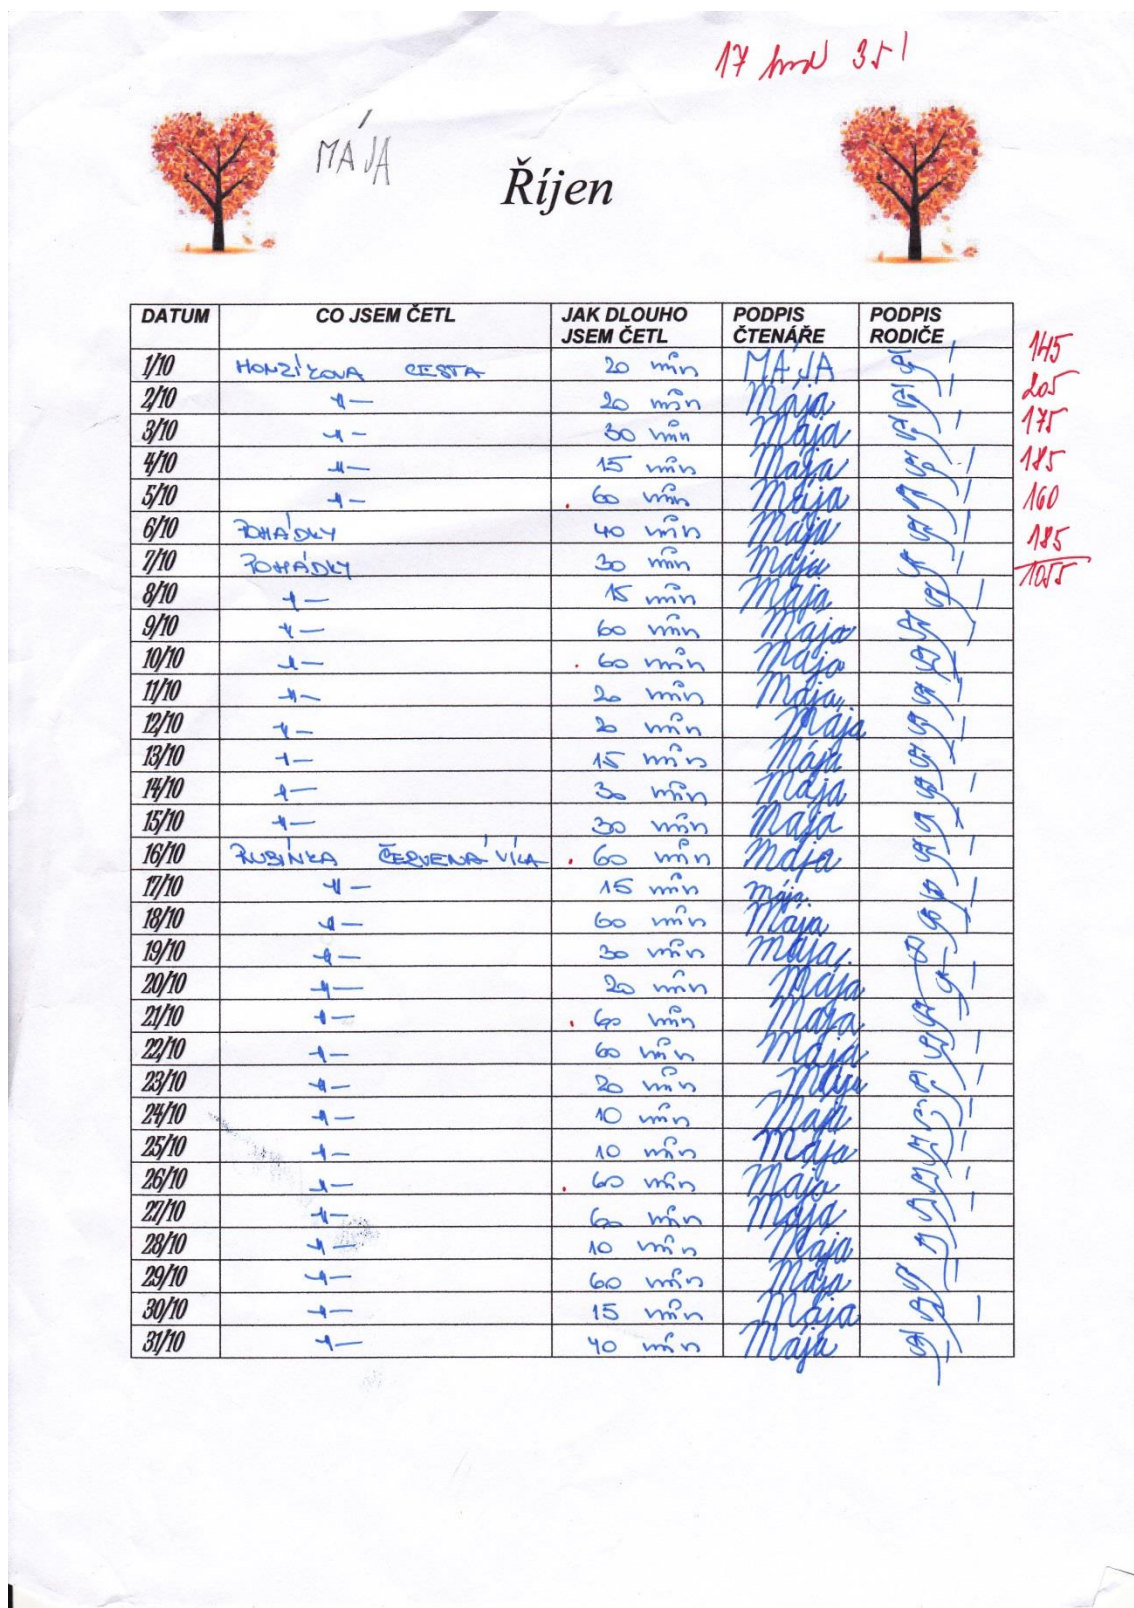 17 hod 35'
MÁJA
Říjen
DATUM CO JSEM ČETL JAK DLOUHO JSEM ČETL PODPIS ČTENÁŘE PODPIS RODIČE
1/10 HONZÍKOVA CESTA 20 min MÁJA
2/10 -"- 20 min Mája
3/10 -"- 30 min Mája
4/10 -"- 15 min Mája
5/10 -"- 60 min Mája
6/10 POHÁDKY 40 min Mája
7/10 POHÁDKY 30 min Mája
8/10 -"- 15 min Mája
9/10 -"- 60 min Mája
10/10 -"- 60 min Mája
11/10 -"- 20 min Mája
12/10 -"- 20 min Mája
13/10 -"- 15 min Mája
14/10 -"- 30 min Mája
15/10 -"- 30 min Mája
16/10 RUBÍNKA ČERVENÁ VÍLA 60 min Mája
17/10 -"- 15 min Mája
18/10 -"- 60 min Mája
19/10 -"- 30 min Mája
20/10 -"- 20 min Mája
21/10 -"- 60 min Mája
22/10 -"- 60 min Mája
23/10 -"- 20 min Mája
24/10 -"- 10 min Mája
25/10 -"- 10 min Mája
26/10 -"- 60 min Mája
27/10 -"- 60 min Mája
28/10 -"- 10 min Mája
29/10 -"- 60 min Mája
30/10 -"- 15 min Mája
31/10 -"- 40 min Mája
145
205
175
185
160
185
1055